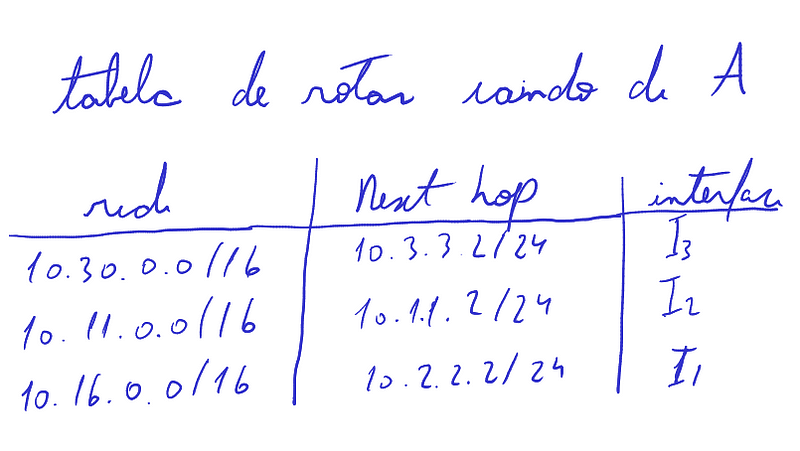 tabela de rotas saindo de A
rede Next hop interface
10.30.0.0/16 10.3.3.2/24 I3
10.11.0.0/16 10.1.1.2/24 I2
10.16.0.0/16 10.2.2.2/24 I1